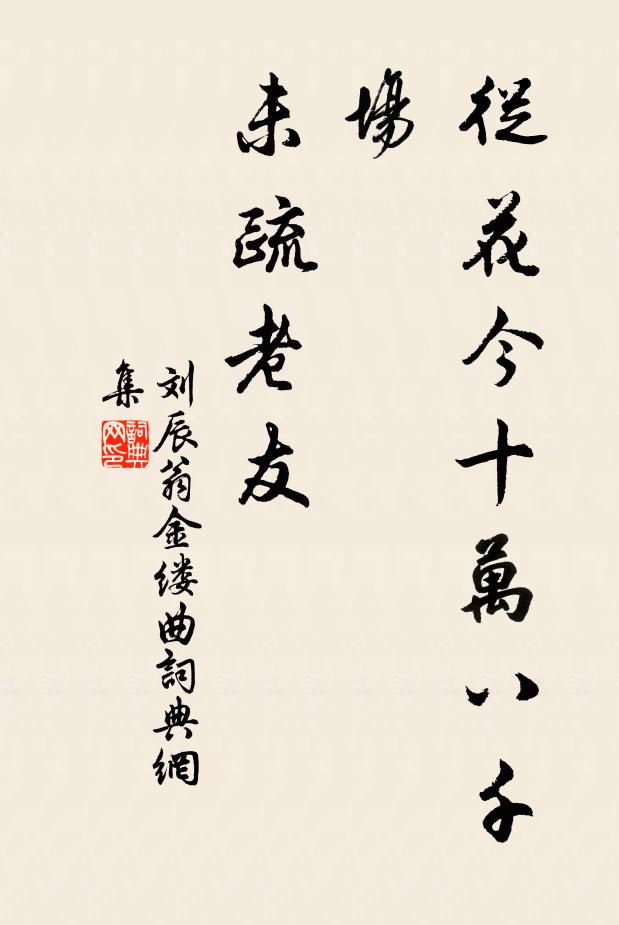 從花今十萬八千
場
未疏老友
刘辰翁金缕曲詞典網
集
詞典
网印